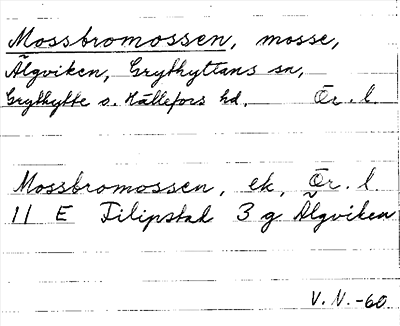 Mossbromossen, mosse,
Älgviken, Grythyttans sn,
Grythytte o. Hällefors hd. Ör. l.
Mossbromossen, ek, Ör. l
11 E Filipstad 3 g Älgviken
V. N. -60